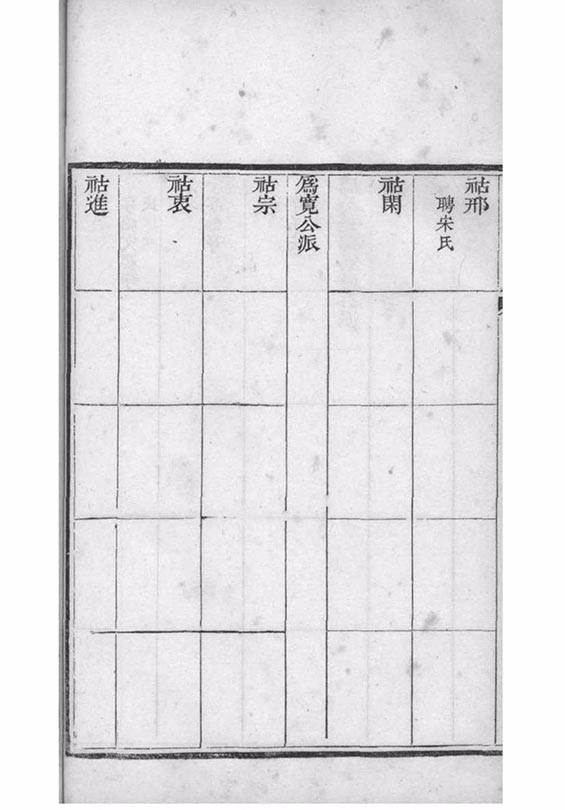 祜邢
聘宋氏
祜閑
爲寬公派
祜宗
祜衷
祜進